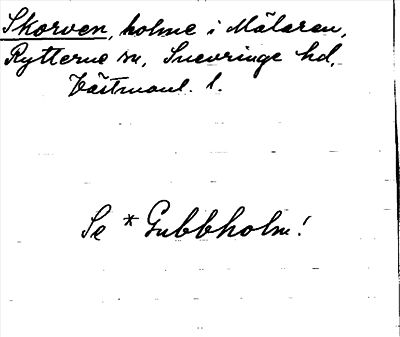 Skorven, holme i Mälaren,
Rytterne sn, Snevringe hd,
Västmanl. l.
Se * Gubbholm!